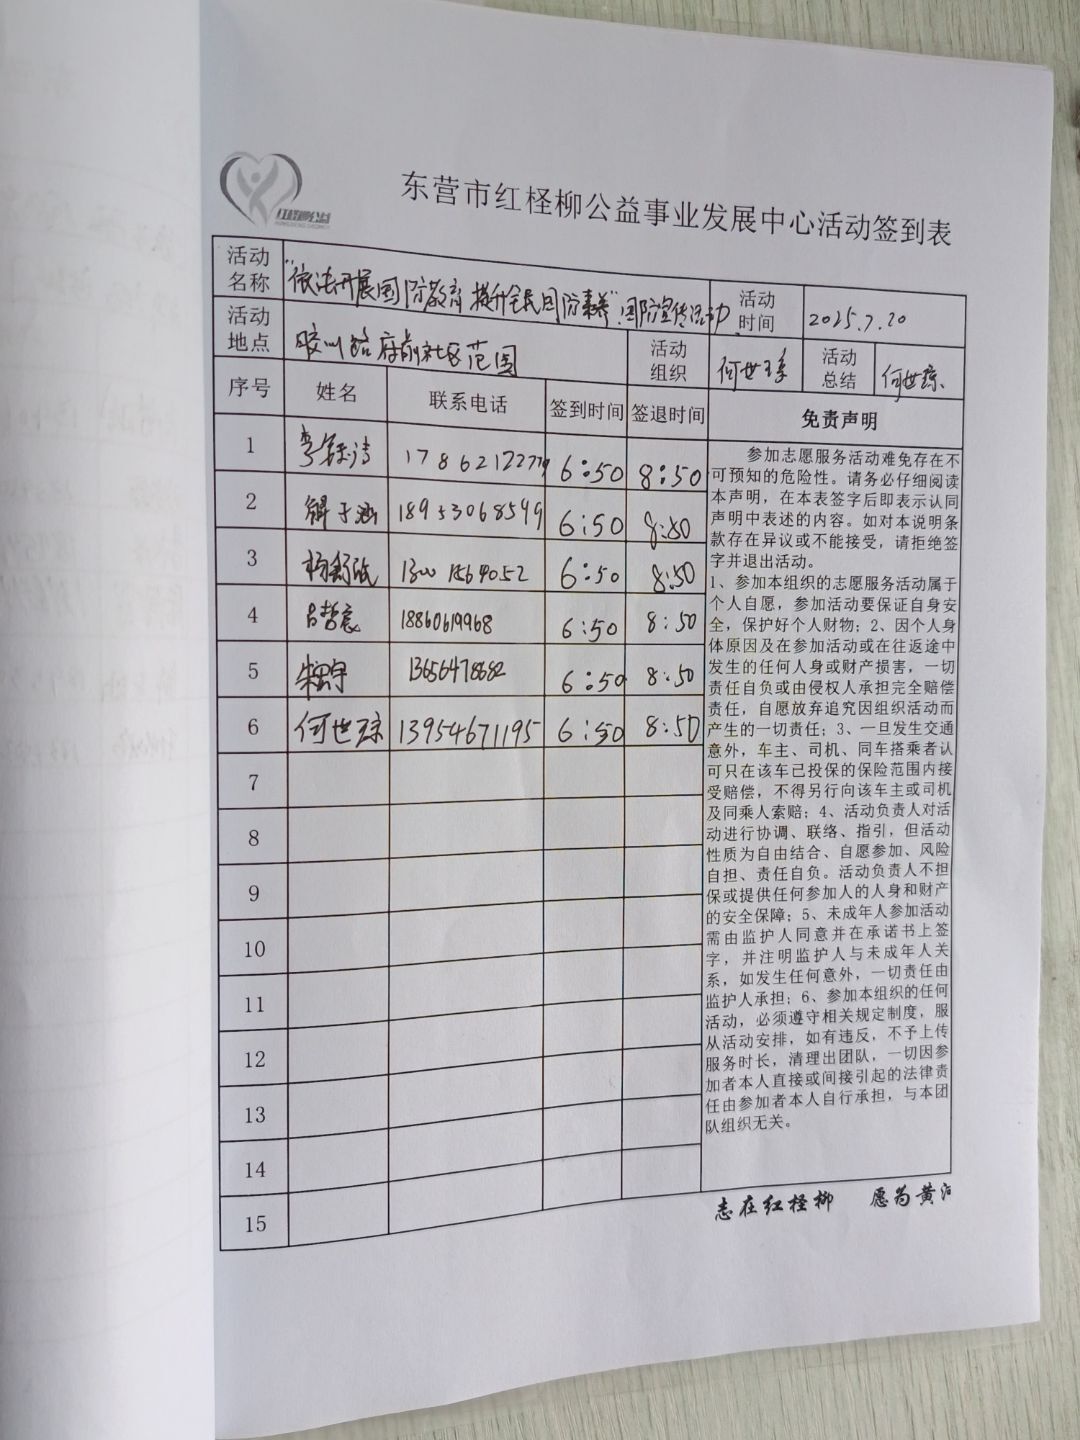 红柽柳公益
东营市红柽柳公益事业发展中心活动签到表
活动名称 "依法开展国防教育 提升全民国防素养"国防宣传活动 活动时间 2025.7.20
活动地点 胶州路府前社区范围 活动组织 何世琼 活动总结 何世琼
序号 姓名 联系电话 签到时间 签退时间 免责声明
1 17862122779 6:50 8:50
2 子涵 18953068549 6:50 8:50
3 13001564052 6:50 8:50
4 吕哲宸 18860619968 6:50 8:50
5 13656478682 6:50 8:50
6 何世琼 13954671195 6:50 8:50
7
8
9
10
11
12
13
14
15
参加志愿服务活动难免存在不
可预知的危险性。请务必仔细阅读
本声明，在本表签字后即表示认同
声明中表述的内容。如对本说明条
款存在异议或不能接受，请拒绝签
字并退出活动。
1、参加本组织的志愿服务活动属于
个人自愿，参加活动要保证自身安
全，保护好个人财物；2、因个人身
体原因及在参加活动或在往返途中
发生的任何人身或财产损害，一切
责任自负或由侵权人承担完全赔偿
责任，自愿放弃追究因组织活动而
产生的一切责任；3、一旦发生交通
意外，车主、司机、同车搭乘者认
可只在该车已投保的保险范围内接
受赔偿，不得另行向该车主或司机
及同乘人索赔；4、活动负责人对活
动进行协调、联络、指引，但活动
性质为自由结合、自愿参加、风险
自担、责任自负。活动负责人不担
保或提供任何参加人的人身和财产
的安全保障；5、未成年人参加活动
需由监护人同意并在承诺书上签
字，并注明监护人与未成年人关
系，如发生任何意外，一切责任由
监护人承担；6、参加本组织的任何
活动，必须遵守相关规定制度，服
从活动安排，如有违反，不予上传
服务时长，清理出团队，一切因参
加者本人直接或间接引起的法律责
任由参加者本人自行承担，与本团
队组织无关。
志在红柽柳 愿为黄河